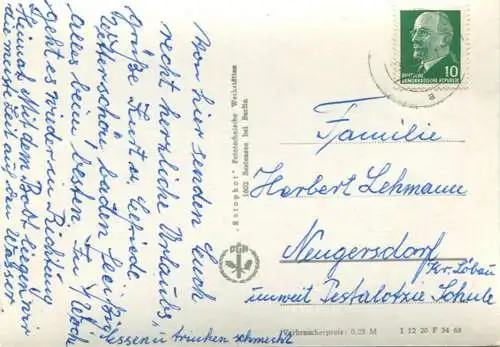 Von hier senden Euch
recht herzliche Urlaubs-
grüße Kurt u. Elfriede
Wetter schön, baden fein
Alles beim besten. In 1 Woche
geht es wieder in Richtung
Heimat. Mit dem Boot liegen wir
die meiste Zeit auf dem Wasser
Essen u trinken schmeckt
DEUTSCHE
DEMOKRATISCHE REPUBLIK
10
a
Familie
Herbert Lehmann
Neugersdorf
Kr. Löbau
unweit Pestalozzie Schule
Fototechnische Werkstätten
1603 Bestensee bei Berlin
PGH
Verbraucherpreis: 0,25 M
I 12 20 F 34 68